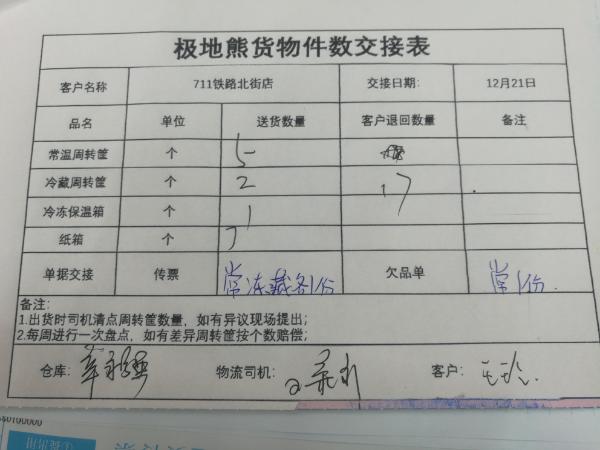 极地熊货物件数交接表
客户名称 711铁路北街店 交接日期: 12月21日
品名 单位 送货数量 客户退回数量 备注
常温周转筐 个 5
冷藏周转筐 个 2 17
冷冻保温箱 个 1
纸箱 个
单据交接 传票 常冻藏各1份 欠品单 常1份
备注:
1.出货时司机清点周转筐数量，如有异议现场提出;
2.每周进行一次盘点，如有差异周转筐按个数赔偿;
仓库: 物流司机: 客户: